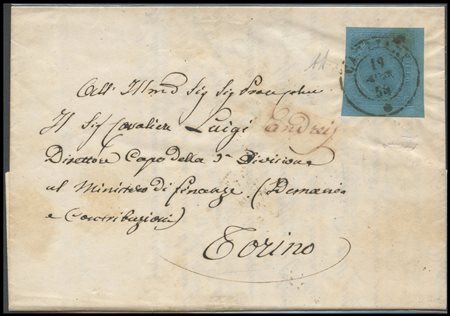 19
58
All' Ill.mo Sig Sig
Il Sig Cavaliere Luigi Andreis
Direttore Capo della 3a Divisione
al Ministero di finanze (Demanio
e Contribuzioni)
Torino